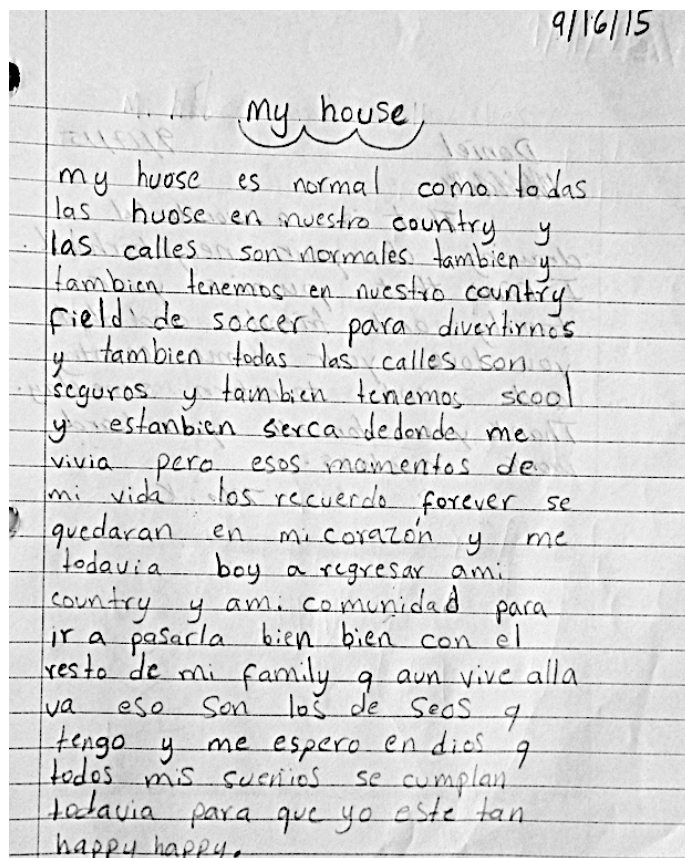 9/16/15
My house
my huose es normal como todas
las huose en nuestro country y
las calles son normales tambien y
tambien tenemos en nuestro country
field de soccer para divertirnos
y tambien todas las calles son
seguros y tambien tenemos scool
y estanbien serca dedonde me
vivia pero esos momentos de
mi vida los recuerdo forever se
quedaran en mi corazón y me
todavia boy a regresar ami
country y ami comunidad para
ir a pasarla bien bien con el
resto de mi family q aun vive alla
va eso son los de seos q
tengo y me espero en dios q
todos mis suenios se cumplan
todavia para que yo este tan
happy happy.